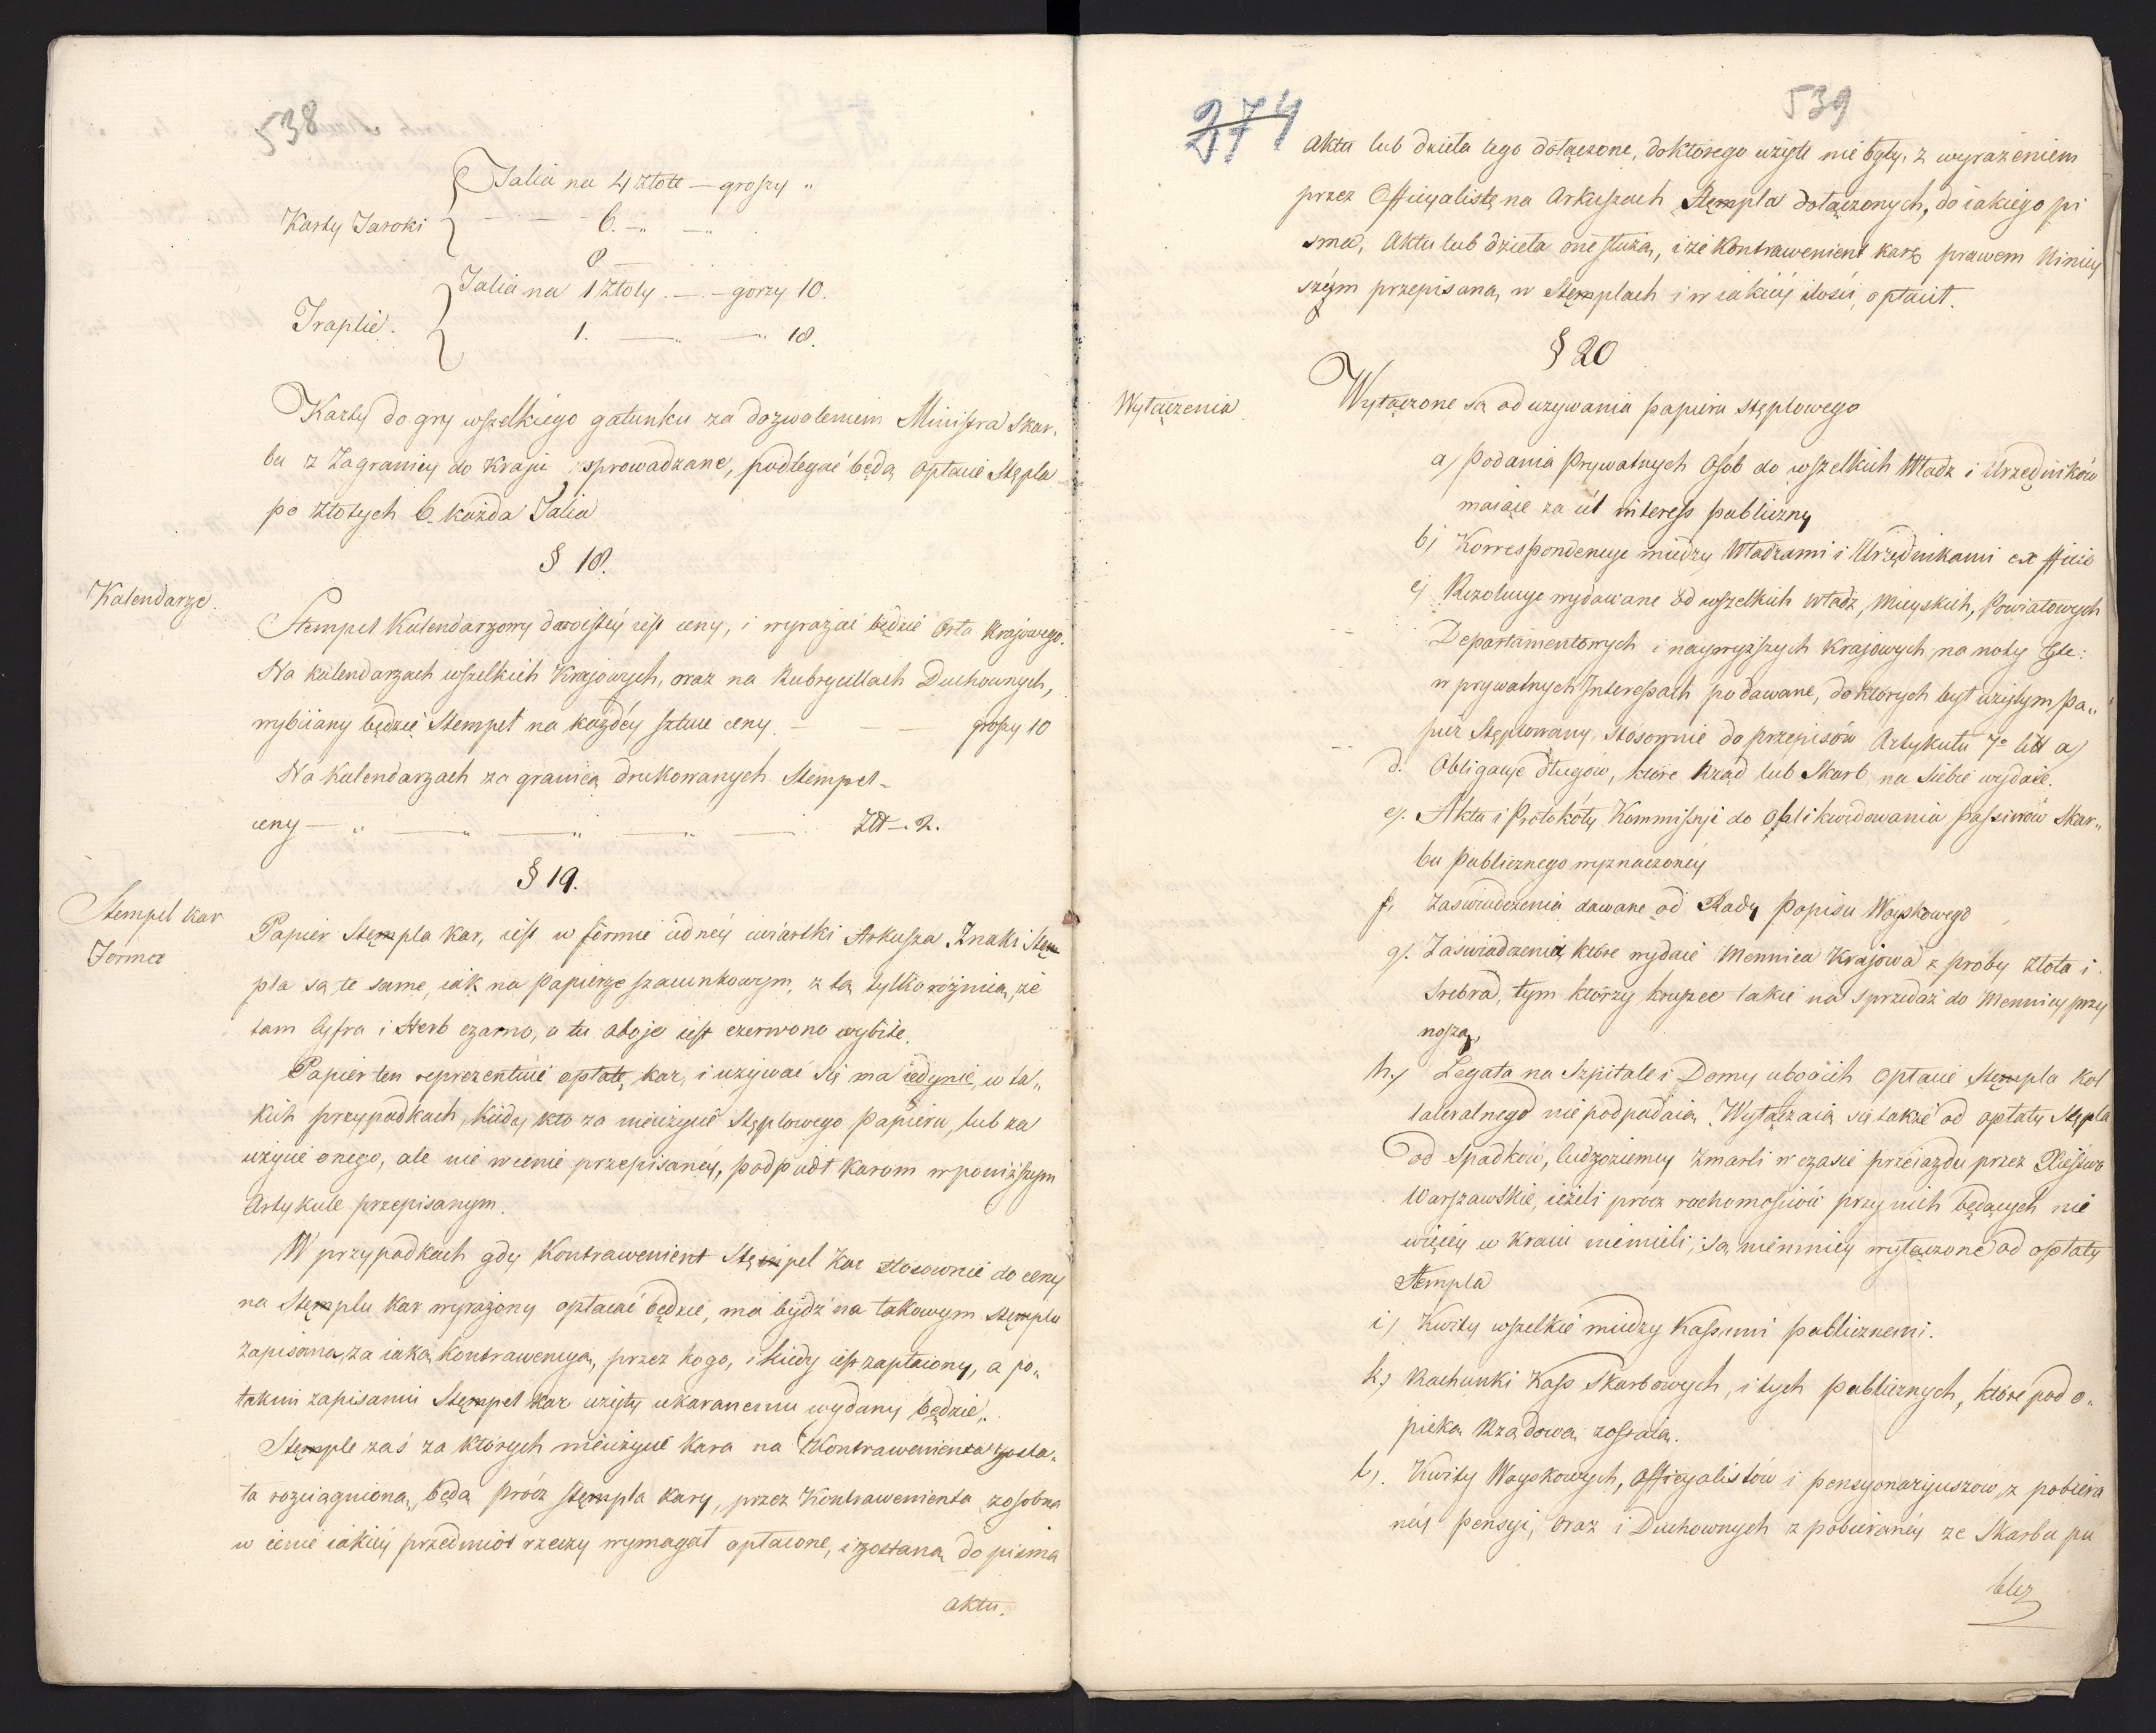 538
Talia na 4 złote — groszy „
Karty Taroki — — — 6. — „ — „
8 —
Talia na 1 złoty. — — gorzy 10.
Traplie.
1. — „ — „ 18.
Karty do gry wszelkiego gatunku za dozwoleniem Ministra Skar„
bu z Zagranicy do Kraju sprowadzane, podlegać będą opłacie Stępla
po złotych 6. każda Talia
§ 18.
Kalendarze.
Stempel Kalendarzowy dwoistey iest ceny, i wyrażać będzie Orła Krajowego.
Na kalendarzach wszelkich Krajowych, oraz na Rubrycellach Duchownych,
wybiiany będzie Stempel na każdéy sztuce ceny. — — — groszy 10
Na Kalendarzach za granicą drukowanych Stempel
ceny — „ — „ — „ — „ — Złł —. 2.
§ 19.
Stempel kar
Forma
Papier Stempla kar, iest w formie iednéy cwiartki Arkusza. Znaki Stem
pla są te same, iak na papierze szacunkowym, z tą tylko różnicą, że
tam Cyfra i Herb czarno, a tu oboje iest czerwono wybite.
Papier ten reprezentuie opłatę kar, i używać się ma iedynie, w ta„
kich przypadkach, kiedy kto za nieużycie Stęplowego papieru, lub za
użycie onego, ale nie w cenie przepisanéy, podpadł karom w poniższym
Artykule przepisanym.
W przypadkach gdy Kontrawenient Stempel Kar stosownie do ceny
na Stemplu Kar wyrażony opłacać będzie, ma bydź na takowym stemplu
zapisana, za iaką kontrawencyą, przez kogo, i kiedy iest zapłacony, a po„
takim zapisaniu Stempel kar użyty ukaranemu wydany będzie.
Stemple zaś za których nieużycie kara na Kontrawenienta zosta„
ła rozciągniona, będą prócz stempla kary, przez Kontrawenienta zosobna
w cenie iakiéy przedmiot rzeczy wymagał opłacone, i zostaną do pisma
aktu.
274
539
aktu lub dzieła tego dołączone, do którego użyte nie były, z wyrażeniem
przez Officyalistę na Arkuszach Stempla dołączonych, do iakiego pi
sma, Aktu lub dzieła one służą, i że Kontrawenient karę prawem Niniey
széym przepisaną w Stemplach i w iakiéy ilości, opłacił.
§ 20
Wyłączenia
Wyłączone są od używania papieru stęplowego
a) podania Prywatnych Osób do wszelkich Władz i Urzędników
maiące za cel interess publiczny
b) Korrespondencye między Władzami i Urzędnikami ex officio
c) Rezolucye wydawane od wszelkich Władz, Mieyskich, Powiatowych
Departamentowych i naywyższych Krajowych, na noty Etc:
w prywatnych Interessach podawane, do których był użytym pa„
pier Stęplowany, stosownie do przepisów Artykułu 7º litt a)
d. Obligacye długów, które Rząd lub Skarb na siebie wydaie.
e). Akta i Protokóły Kommissyi do Oblikwidowania passivów Skar„
bu publicznego wyznaczonéy
f, Zaświadczenia dawane od Rady Popisu Woyskowego
g). Zaświadczenia, które wydaie Mennica Krajowa z próby złota i
Srebra, tym którzy kruszec takie na sprzedaż do Mennicy przy
noszą.
h.) Legata na Szpitale i Domy ubogich opłacie Stempla kol
lateralnego nie podpadaią. Wyłączaią się także od opłaty Stępla
od Spadków, Cudzoziemcy zmarli w czasie przeiazdu przez Xięstwo
Warszawskie, ieżeli prócz ruchomościów przy nich będących nic
więcéy w Kraiu niemieli, są niemniéy wyłączone od opłaty
Stempla
i) Kwity wszelkie między Kassami publicznemi.
k) Rachunki Kass Skarbowych, i tych publicznych, które pod o„
pieką Rządową zostaią.
l). Kwity Woyskowych, Officyalistów i pensyonaryuszów, z pobiera
néy pensyi, oraz i Duchownych z pobieranéy ze Skarbu pu
blicz